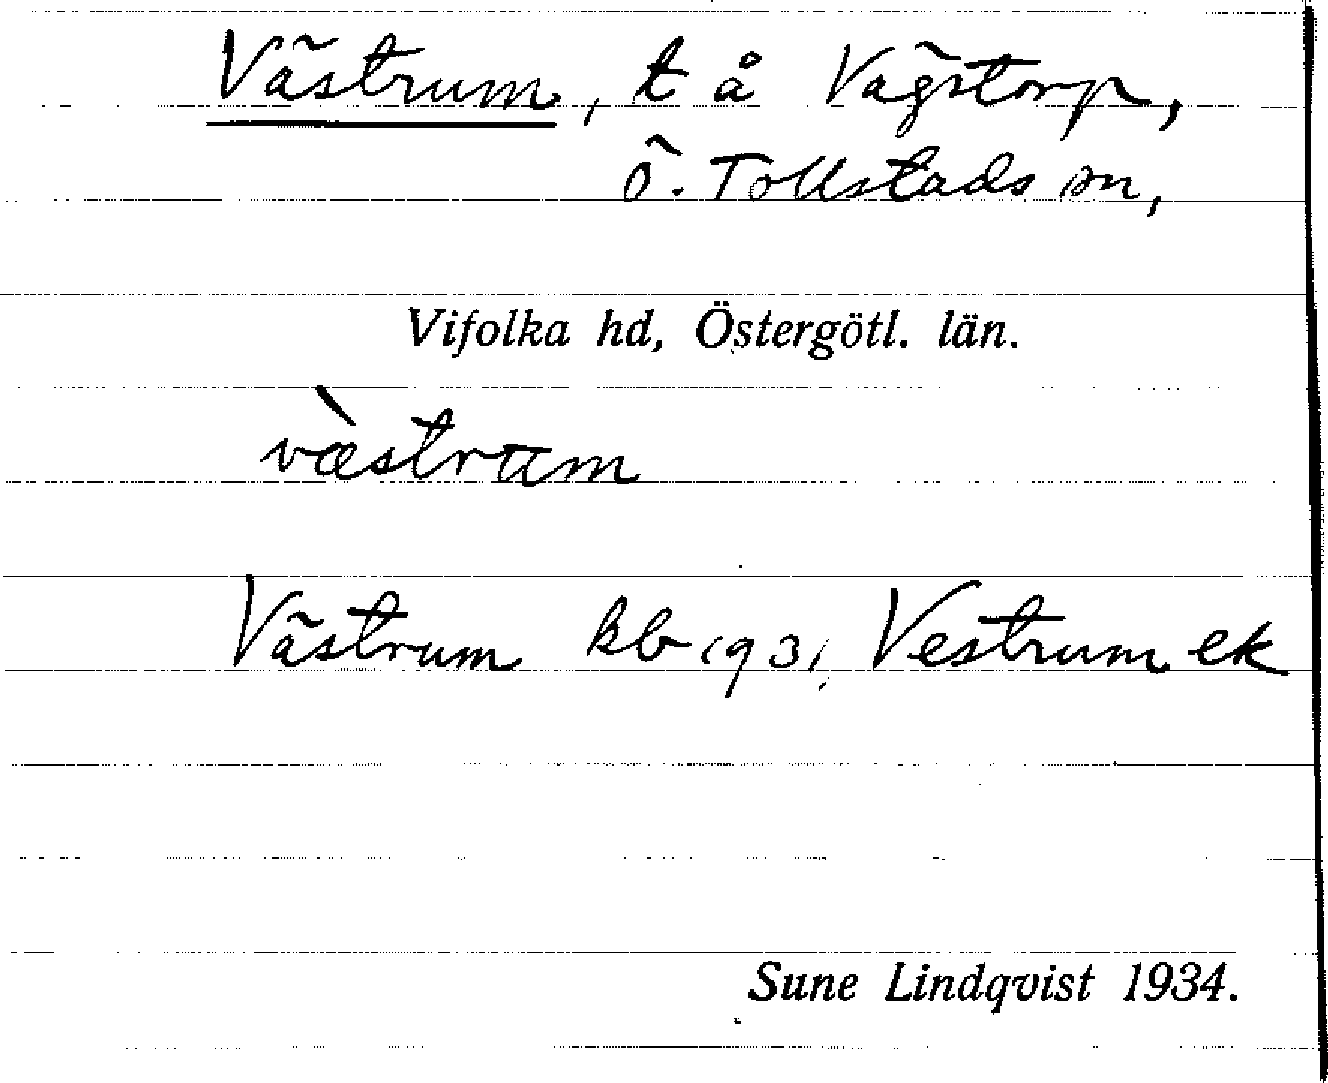 Västrum, t å Vägstorp,
Ö. Tollstads sn,
Vifolka hd, Östergötl. län.
væ̀strum
Västrum kb 1931, Vestrum ek
Sune Lindqvist 1934.